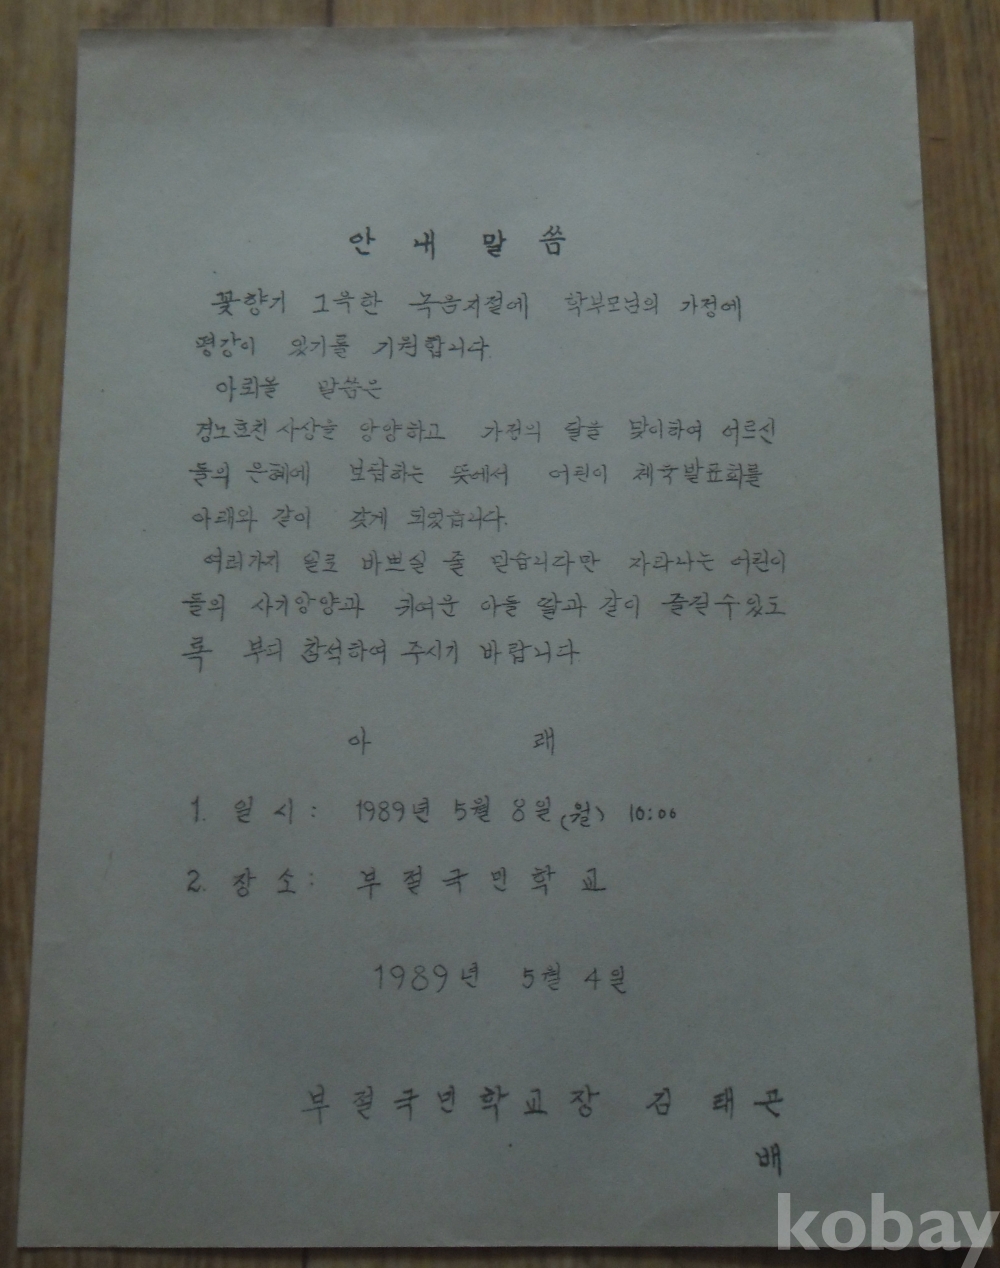 안 내 말 씀
꽃향기 그윽한 녹음지절에 학부모님의 가정에
평강이 있기를 기원합니다.
아뢰올 말씀은
경노효친 사상을 앙양하고 가정의 달을 맞이하여 어르신
들의 은혜에 보답하는 뜻에서 어린이 체육발표회를
아래와 같이 갖게 되었습니다.
여러가지 일로 바쁘실 줄 믿습니다만 자라나는 어린이
들의 사기앙양과 귀여운 아들 딸과 같이 즐길수있도
록 부디 참석하여 주시기 바랍니다.
아 래
1. 일 시 : 1989년 5월 8일(월) 10:00
2. 장 소 : 부 절 국 민 학 교
1989년 5월 4일
부 절 국 민 학 교 장 김 태 곤
배
kobay